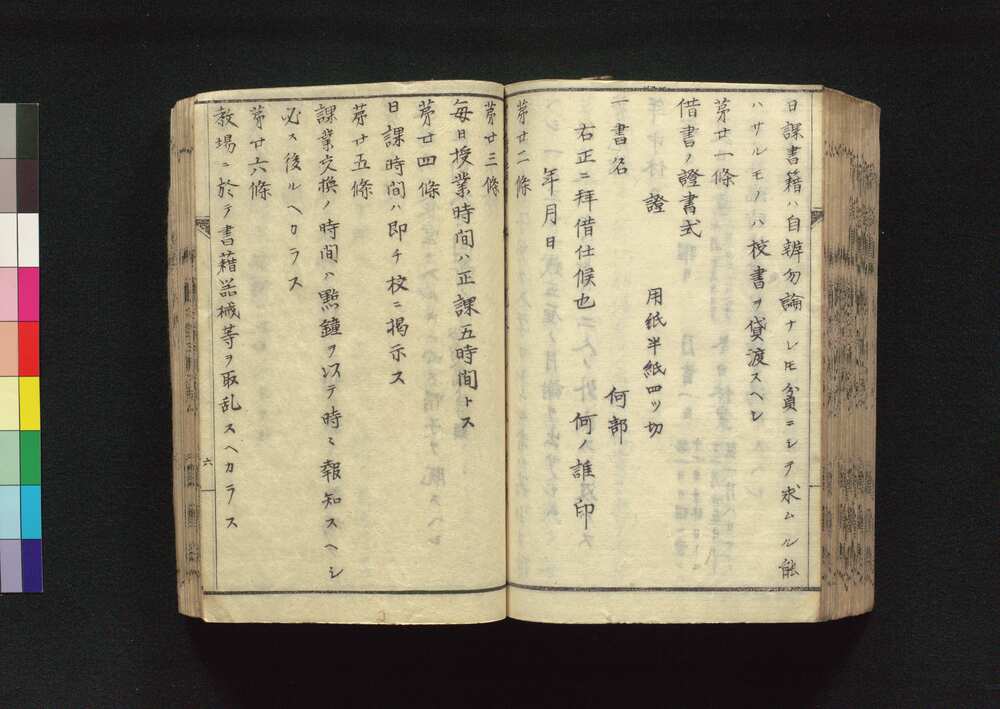 日課書籍ハ自辨勿論ナレ𪜈貧ニシテ求ムル能
ハサルモノハ校書ヲ貸渡スヘシ
苐廿一條
借書ノ證書式
證　用紙半紙四ツ切
一書名　何部
右正ニ拜借仕候也
年月日　何ノ誰印
苐廿二條
苐廿三條
毎日授業時間ハ正課五時間トス
苐廿四條
日課時間ハ即チ校ニ掲示ス
苐廿五條
課業交換ノ時間ハ點鐘ヲ以テ時々報知スヘシ
必ス後ルヘカラス
苐廿六條
教場ニ於テ書藉器械等ヲ取乱スヘカラス
六